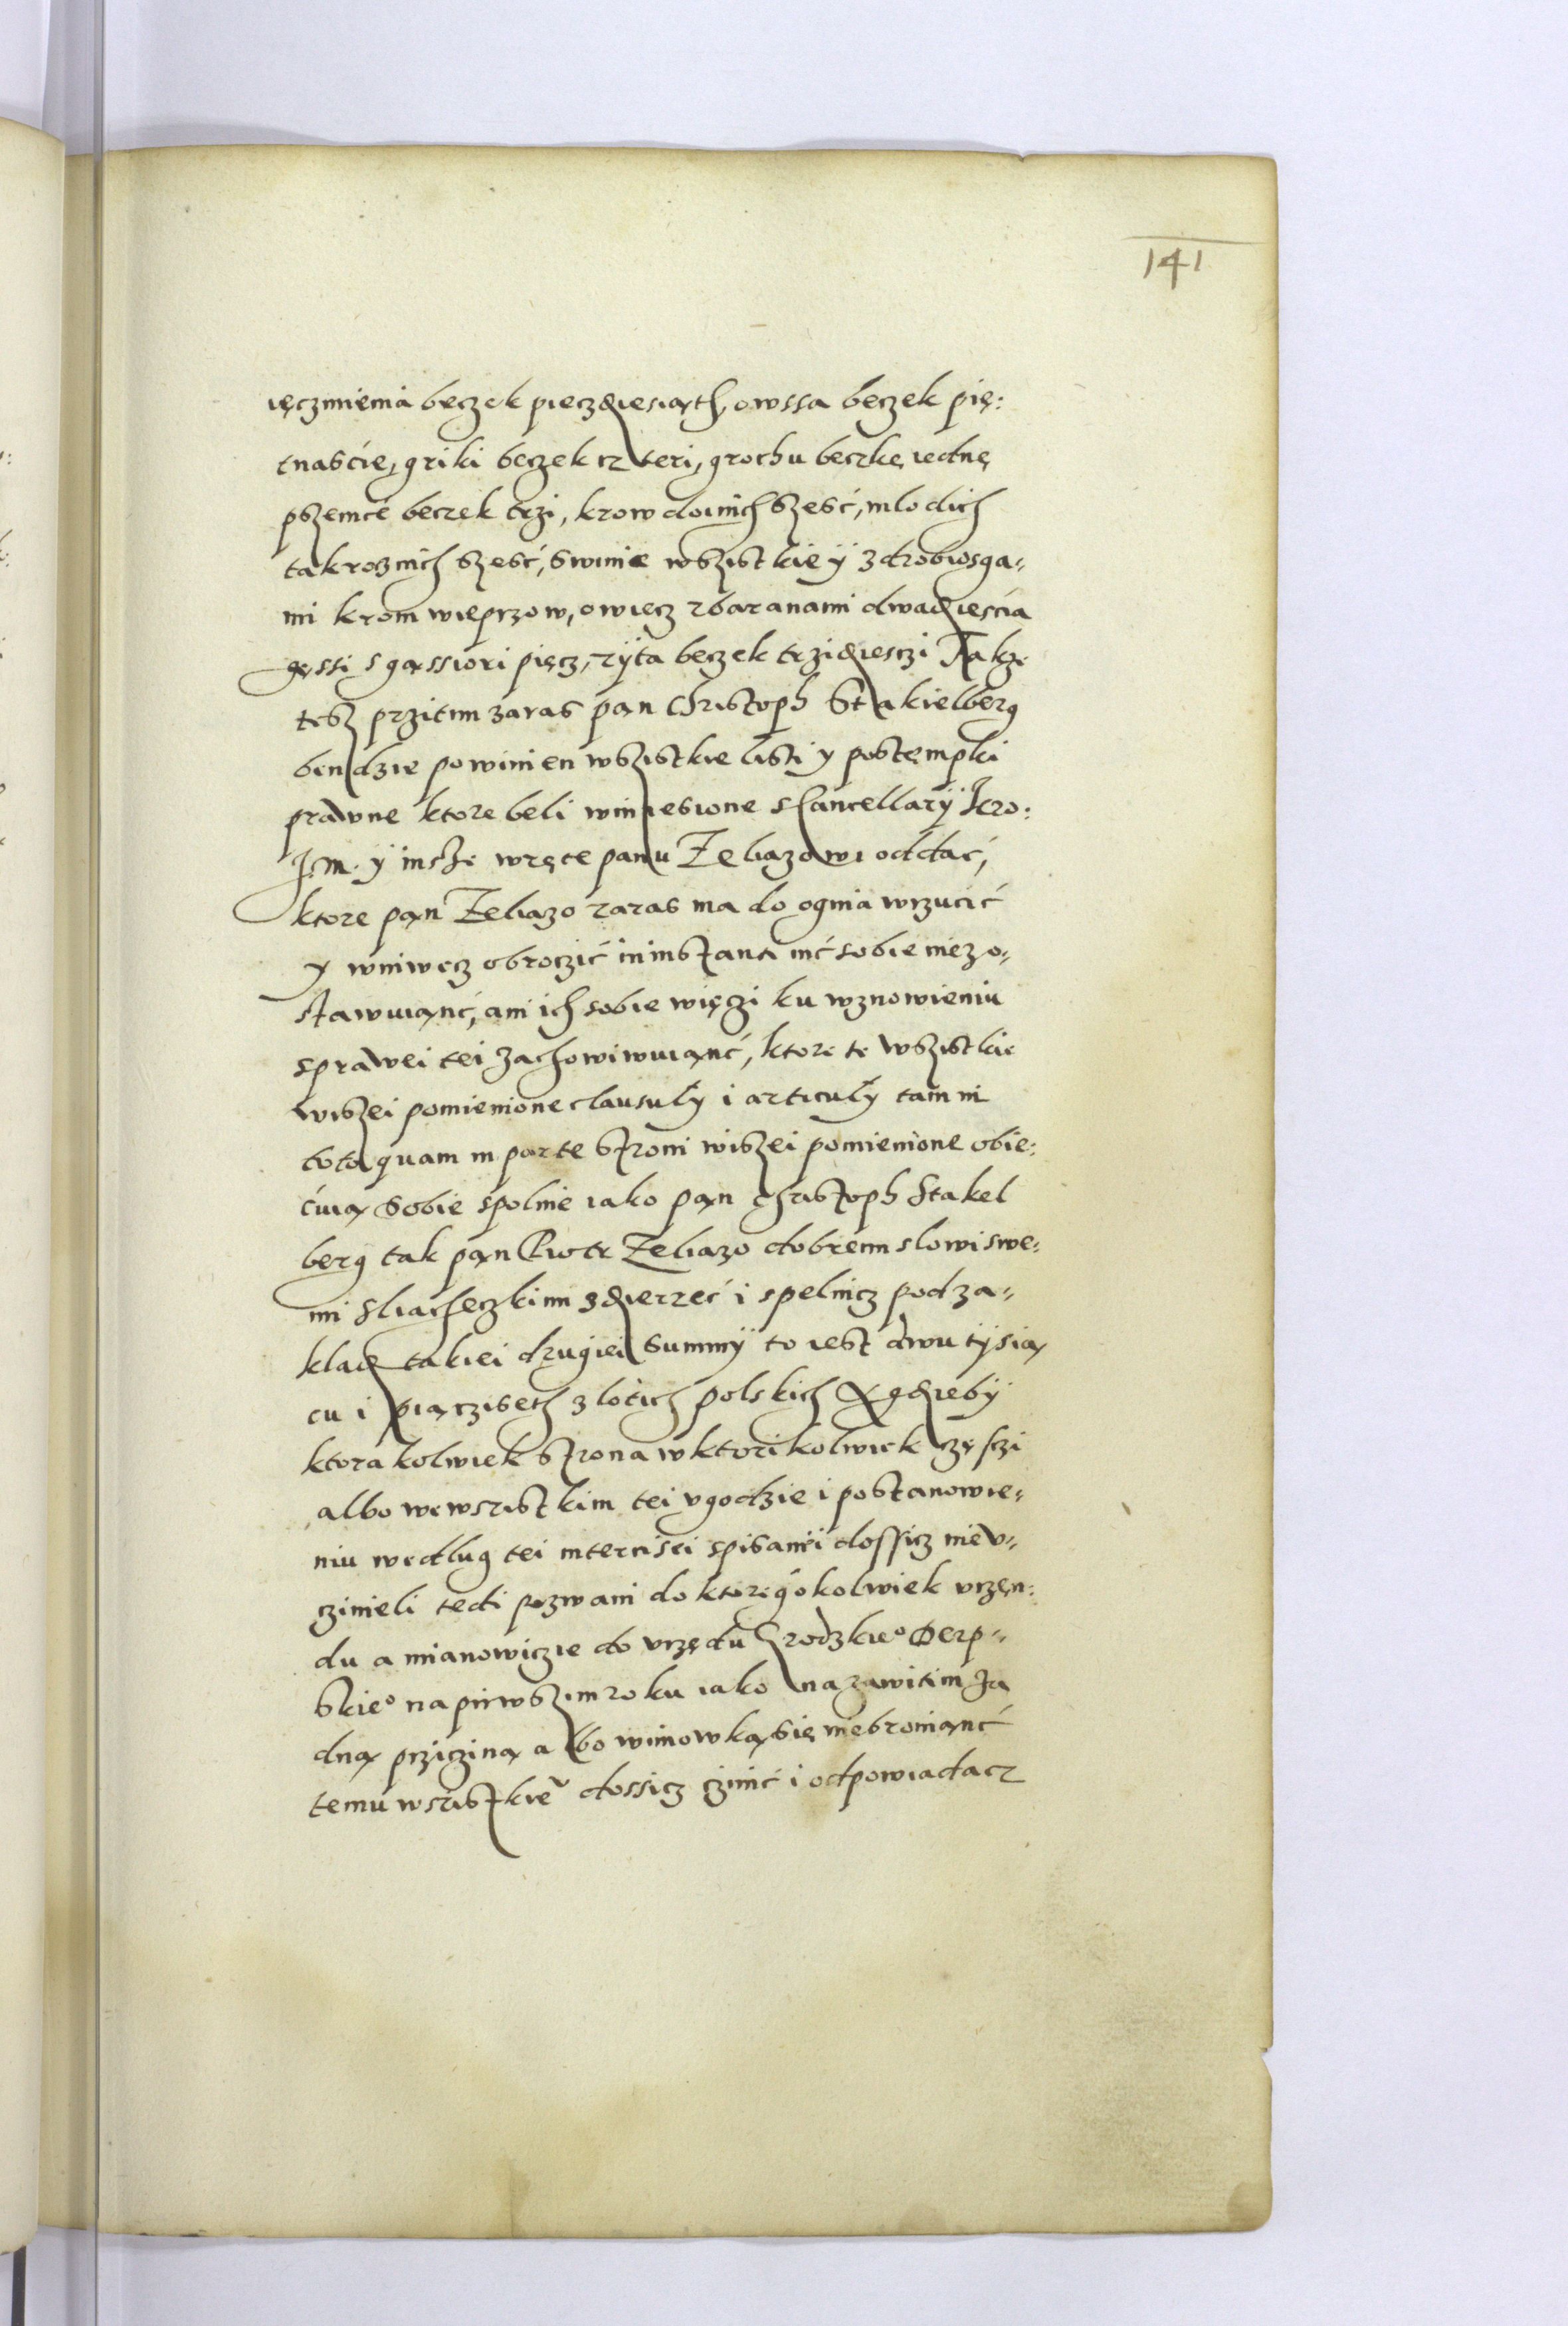 141
ięczmienia beczek pieczdziesiąth, owssa beczek pię:
tnaście, griki beczek czteri, grochu beczkę iednę
pszenice beczek trzi, krow doinich szesć, mlodich
takrocznich szesć, swinie wszistkie ÿ z drobiosga-
mi krom wieprzow, owiecz z baranami dwadziescia
gęssi s gąssiori pięcz, rÿta beczek trzidziesczi Takze
tesz przitim zaras pan Christoph Stakielberg
bendzie powinien wszistkie listi y postempki
prawne ktore beli winiesione s Cancellarÿ Jero:
Jm. ÿ insze wręce panu Zeliazowi oddać,
ktore pan Zeliazo zaras ma do ognia wrzucić
y wniwecz obroczić in instanti nić sobie niezo-
stawuianć, ani ich sobie więczi ku wznowieniu
sprawei tei zachowiwuianć, ktore te wszistkie
wiszei pomienione clausulÿ i articulÿ tam in
toto quam in parte stroni wiszei pomienione obie:
ćuią sobie spolnie iako pan Christoph Stakel
berg tak pan Piotr Zeliazo dobrem slowi swe:
mi sliacheczkimi zdzierzeć i spelnicz pod za-
klad takiei drugiei summÿ to iest dwu tÿsią
cu i piącziseth zlotich polskich A gdzieby
ktora kolwiek strona w ktori kolwiek częsczi
albo we wszistkim tei ugodzie i postanowie-
niu wedlug tei intercisei spisanei dossicz nie u-
czinieli tedi pozwani do ktoregokolwiek urzęn:
du a mianowiczie do urzędu Grodzkieo Derp-
skieo na pirwszim roku iako na zawitim Ja
dną prziczina albo wimowką się niebronianć
temu wszistkie dossicz czinić i odpowiadacz